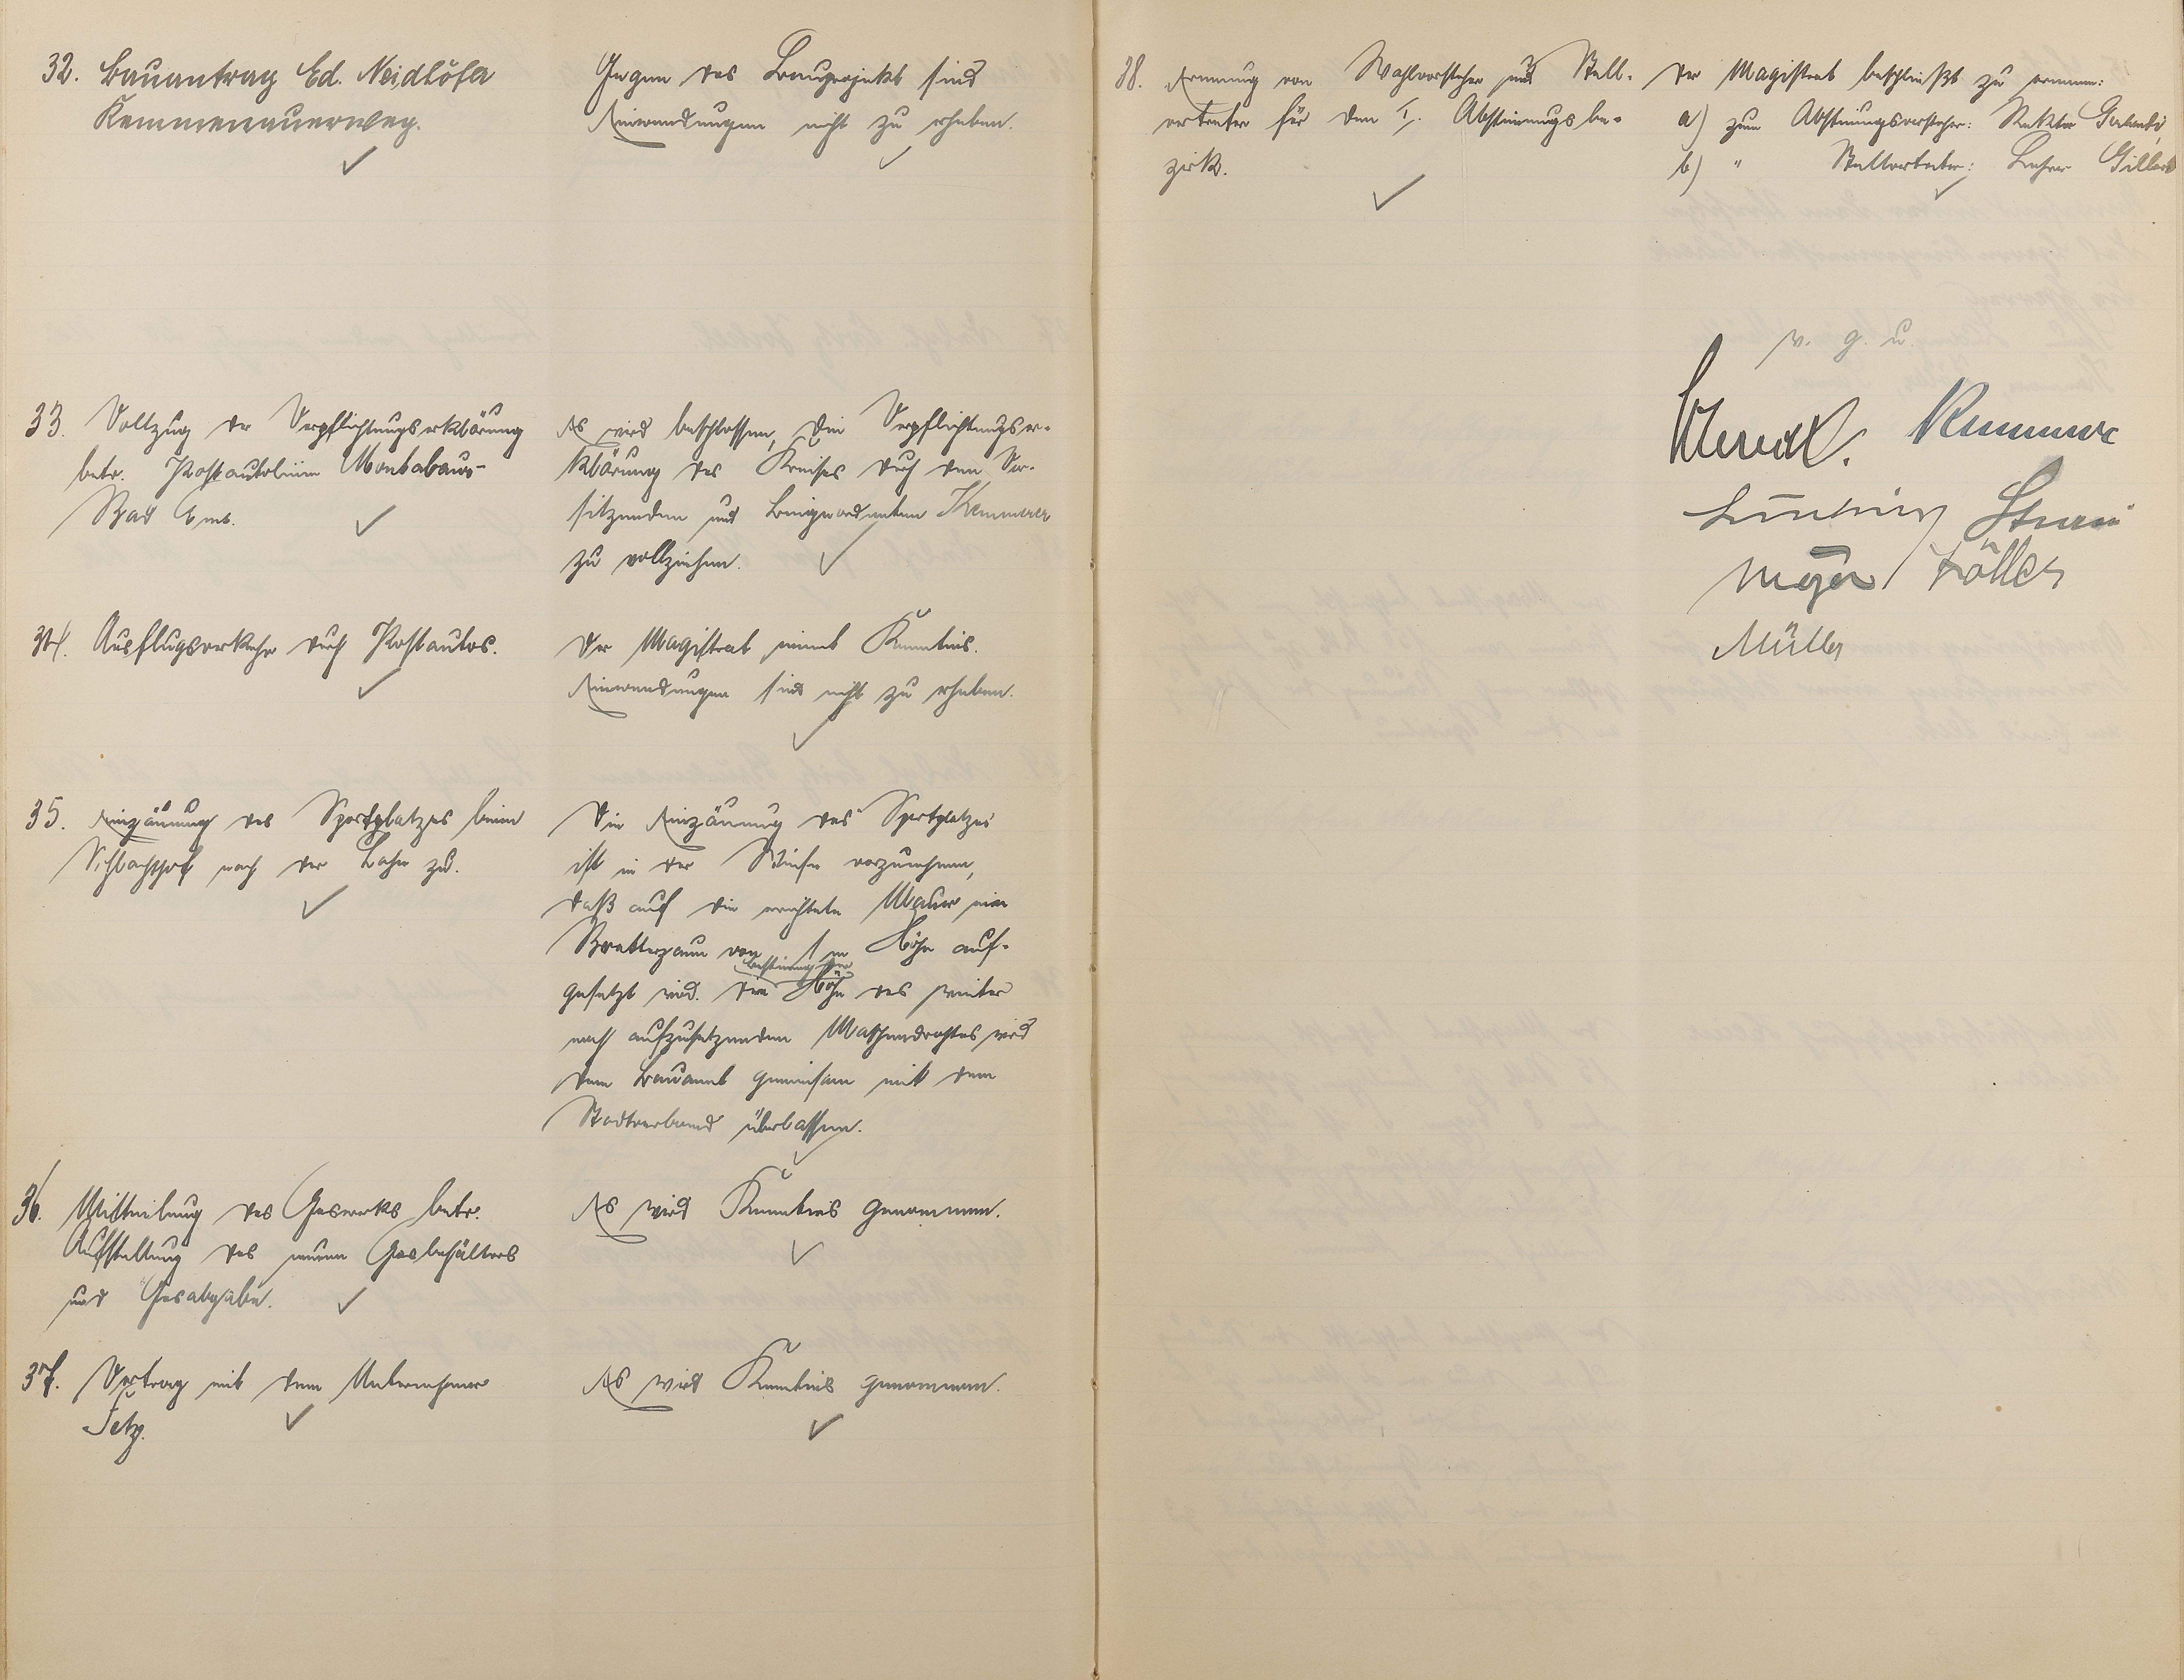 32. Bauantrag Ed. Neidhöfer
Kemmenauerweg.
Gegen das Bauprojekt sind
Einwendungen nicht zu erheben.
33. Vollzug der Verpflichtungserklärung
betr. Postautolinie Montabaur-
Bad Ems.
Es wird beschlossen, die Verpflichtungser-
klärung des Kreises durch den Vor-
sitzenden und Beigeordneten Kemmerer
zu vollziehen.
34. Ausflugsverkehr durch Postautos.
Der Magistrat nimmt Kenntnis.
Einwendungen sind nicht zu erheben.
35. Einzäunung des Sportplatzes beim
Schlachthof nach der Lahn zu.
Die Einzäunung des Sportplatzes
ist in der Weise vorzunehmen,
daß auf die errichtete Mauer ein
Bretterzaun von 1 m Höhe auf-
gesetzt wird. Die Höhe des weiter
noch aufzusetzenden Maschendrahtes wird
dem Bauamt gemeinsam mit dem
Stadtverband überlassen.
36. Mitteilung des Gaswerks betr.
Aufstellung des neuen Gasbehälters
und Gasabgabe.
Es wird Kenntnis genommen.
37. Vertrag mit dem Unternehmer
Setz.
Es wird Kenntnis genommen.
38. Ernennung von Wahlvorsteher und Stell-
vertreter für den I. Abstimmungsbe-
zirk.
Der Magistrat beschließt zu ernennen:
a) zum Abstimmungsvorsteher: Rektor
b) " Stellvertreter: Lehrer
v. g. u.
Kemmerer
Müller